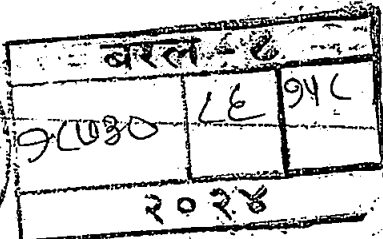 बरल - ८
१८७३० ८६ १५८
२०२४